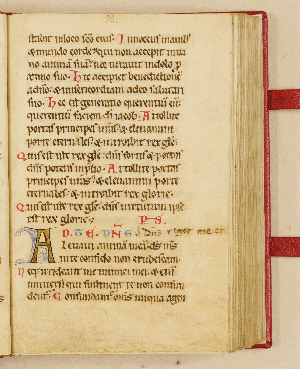 stabit in loco sco eius. Innocens manib;
& mundo corde. qui non accepit in ua
no animã suã: nec iurauit in dolo p
ximo suo. Hic accipiet benedictionẽ
a dño: & misericordiam a deo salutari
suo. Hec est generatio querentiũ eũ:
querentiũ faciem di iacob. Attollite
portas principes uras: & eleuamini
porte eternales: & introibit rex glorie.
Quis est iste rex glie: dñs fortis & potens
dñs potens in plio. Attollite portas
principes uras: & eleuamini porte
eternales: & introibit rex glorie.
Quis est iste rex glie: dñs uirtutum ipse
est rex glorie.
AD TE DÑE
leuaui animã meã: ds ms
in te confido non erubescam.
Neq; irrideant me inimici mei: & eni
uniuersi qui sustinent te non confun
dentur. Confundantur oms iniqua agen